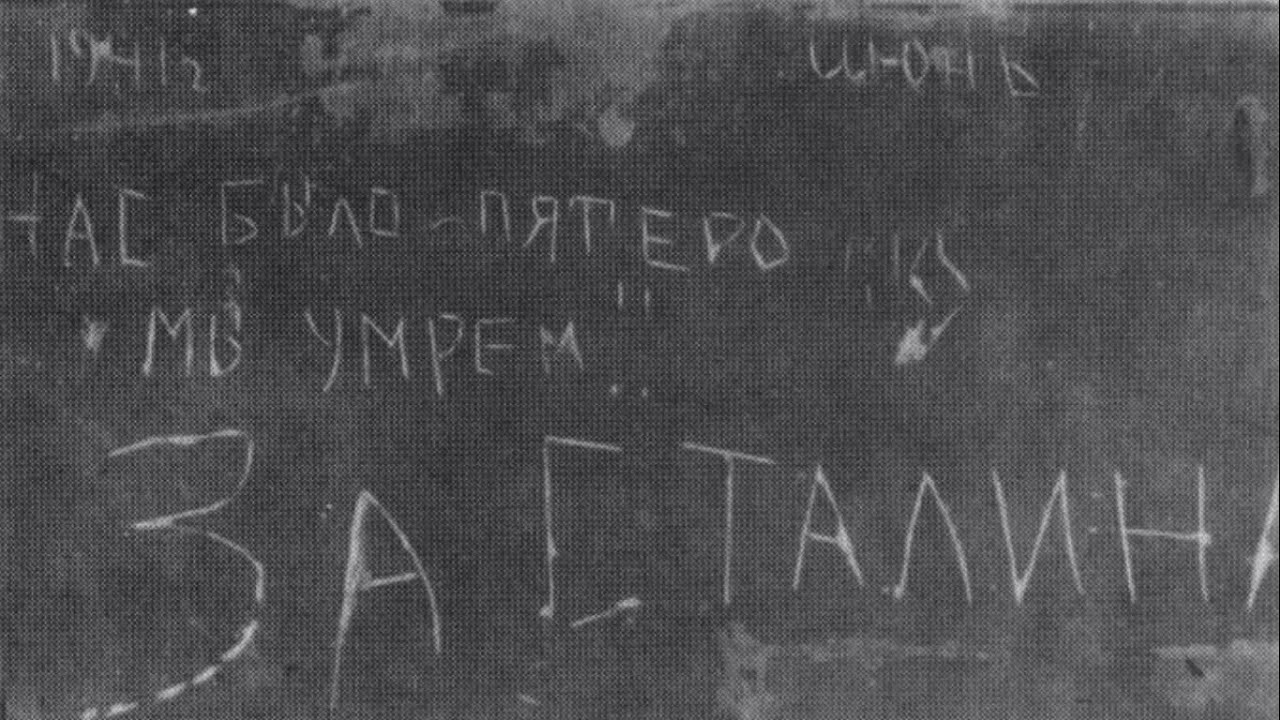 1941г июнь
НАС БЫЛО ПЯТЕРО
МЫ УМРЕМ
ЗА СТАЛИНА